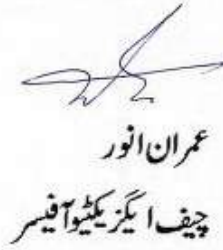 عمران انور
چیف ایگزیکٹیو آفیسر